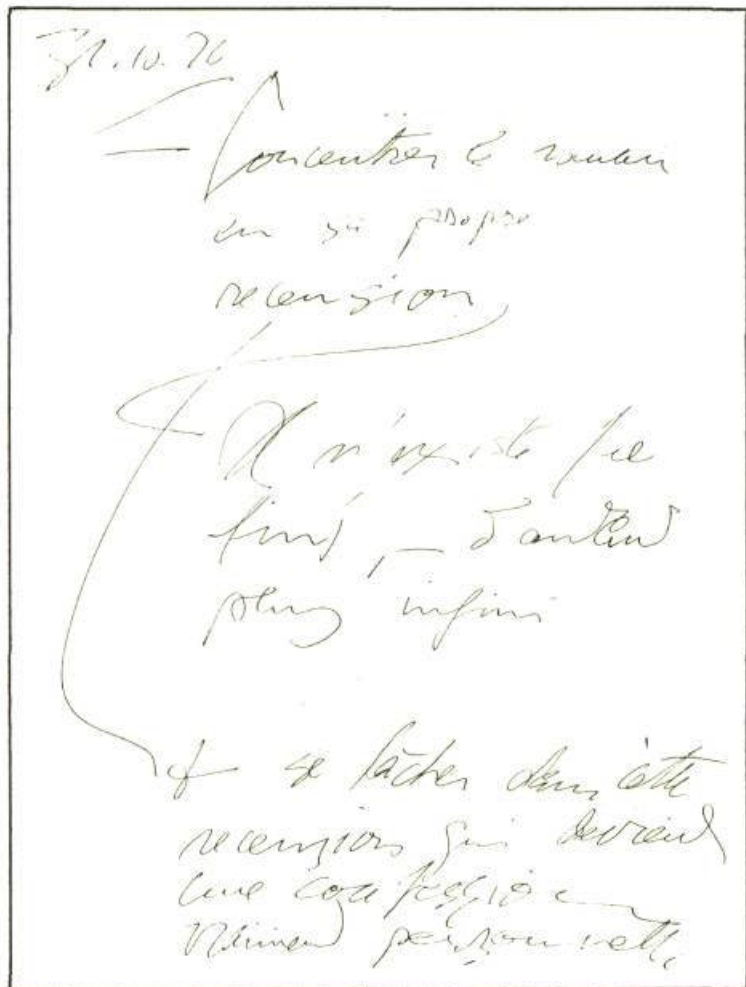 31.10.76
— Concentrer le roman
en sa propre
recension
Il n'existe que
fini, — d'autant
plus infini
+ se lâcher dans cette
recension qui devient
une confession
vraiment personnelle.